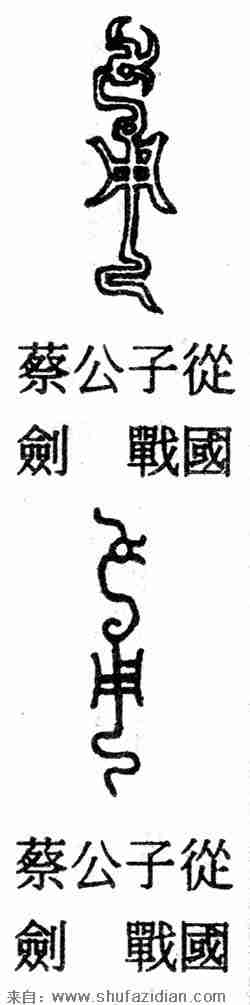 蔡公子從
劍 戰國
蔡公子從
劍 戰國
来自: www.shufazidian.com